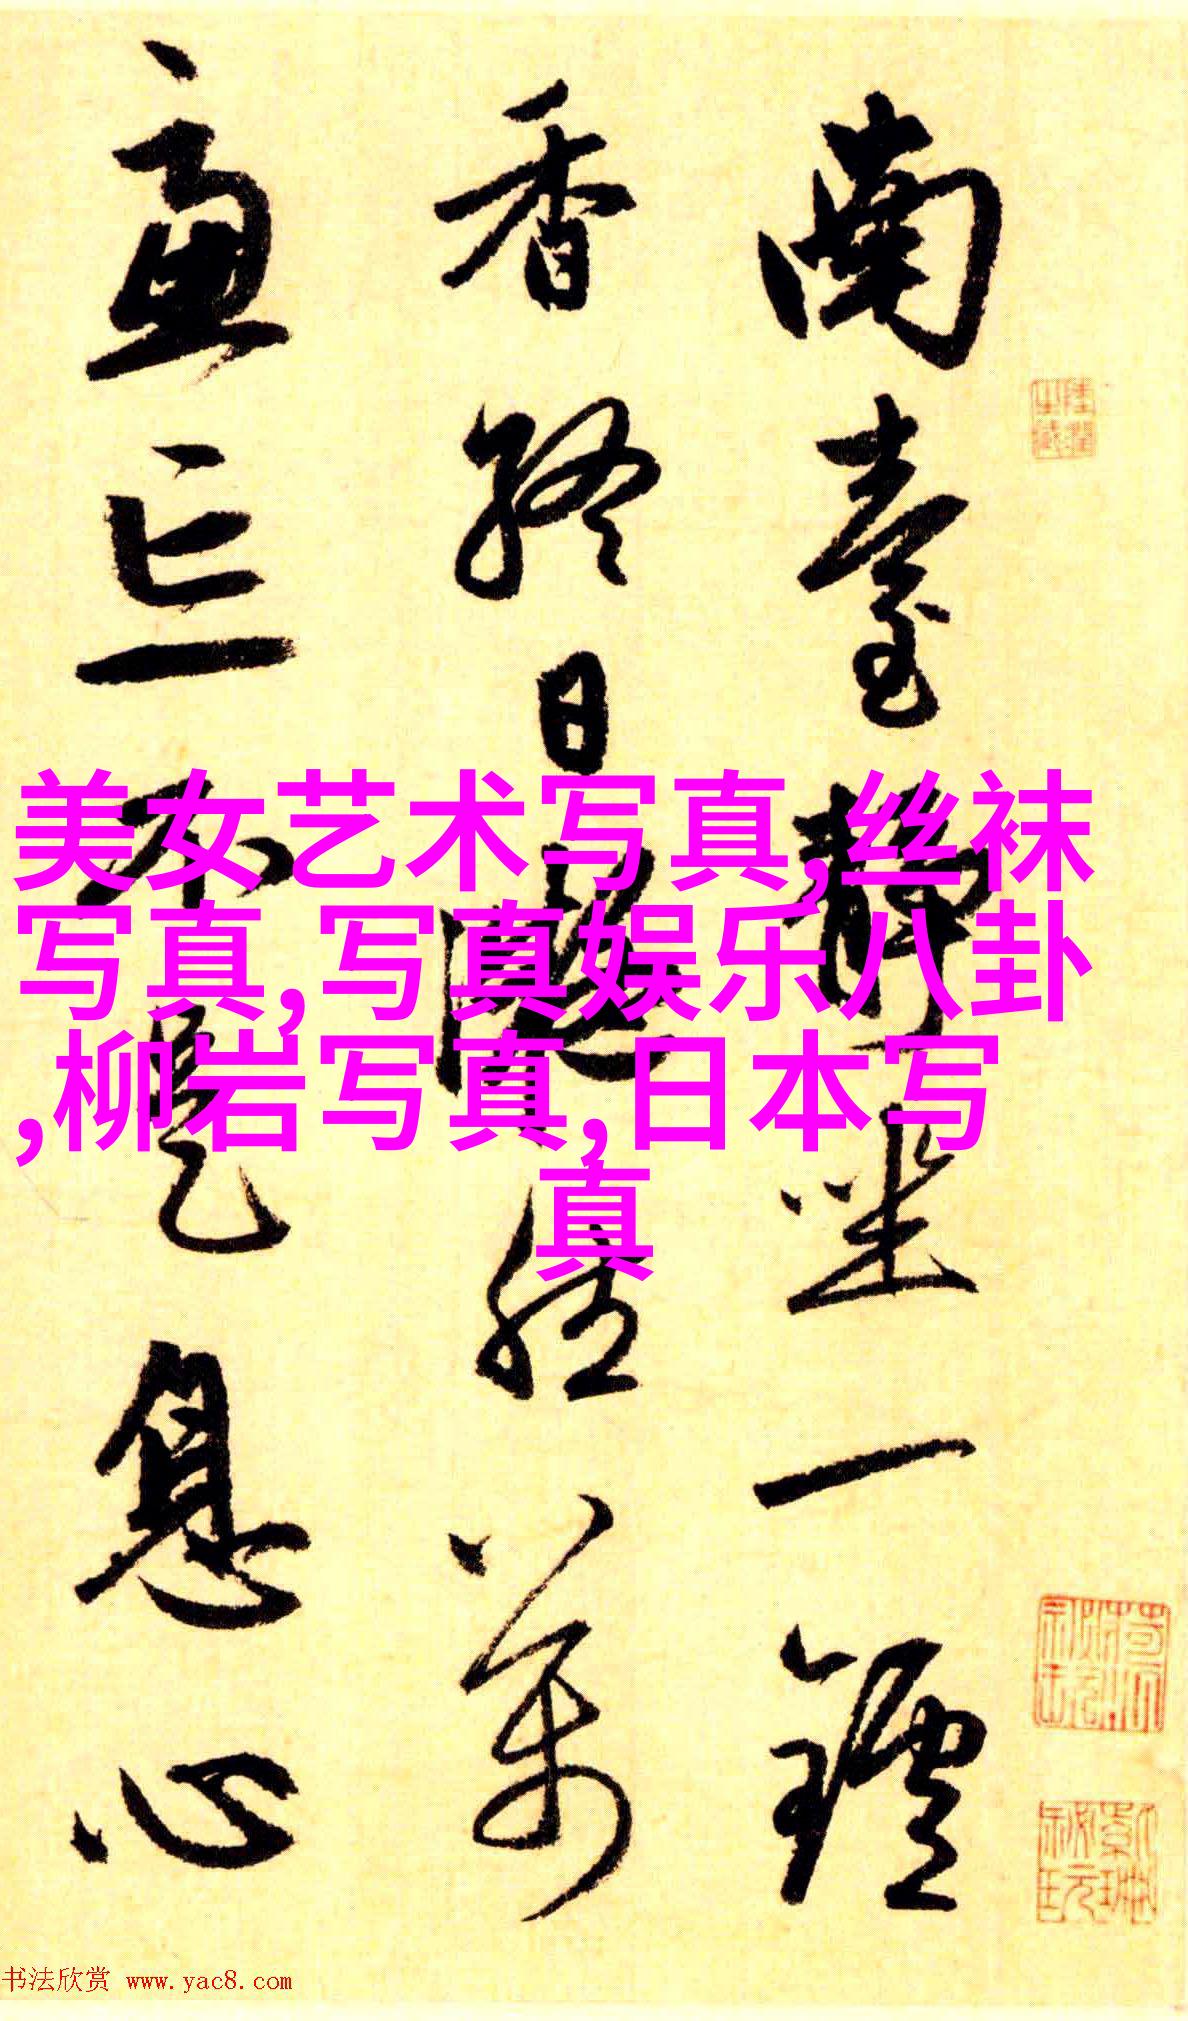 南臺靜坐一鑪
香終日凝然万
慮亡不是息心
美女艺术写真,丝袜
写真,写真娱乐八卦
,柳岩写真,日本写
真
书法欣赏 www.yac8.com